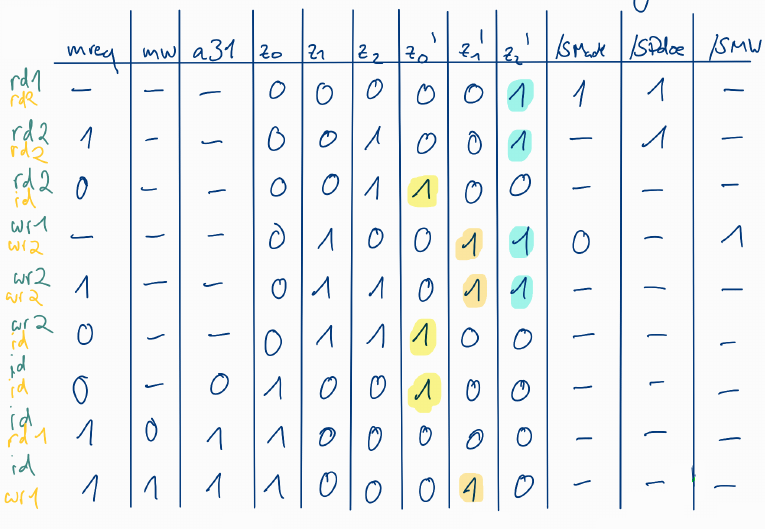 mreq mw a31 z0 z1 z2 z0' z1' z2' /SMadr /SPdoe /SMW
rd1 — — — 0 0 0 0 0 1 1 1 —
rd2
rd2 1 - — 0 0 1 0 0 1 — 1 —
rd2
rd2 0 — - 0 0 1 1 0 0 — — —
id
wr1 — — — 0 1 0 0 1 1 0 — 1
wr2
wr2 1 — — 0 1 1 0 1 1 — — —
wr2
wr2 0 — — 0 1 1 1 0 0 — — —
id
id 0 — 0 1 0 0 1 0 0 — — —
id
id 1 0 1 1 0 0 0 0 0 — — —
rd1
id 1 1 1 1 0 0 0 1 0 — — —
wr1